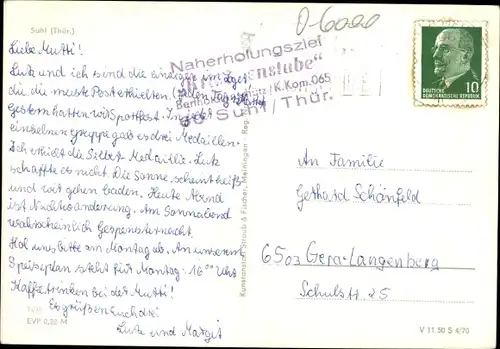 Suhl (Thür.)
Liebe Mutti!
Lutz und ich sind die einzigen im Lager
die die meiste Post erhielten
Gestern hatten wir Sportfest. In jeder
einzelnen Gruppe gab es drei Medaillen.
Ich erhielt die Silber-Medaille. Lutz
schaffte es nicht. Die Sonne scheint heiß
und wir gehen baden. Heute Abend
ist Nachtwanderung. Am Sonnabend
wahrscheinlich Gespensternacht.
Hol uns bitte am Montag ab. An unserem
Speiseplan steht für Montag: 16⁰⁰ Uhr
Kaffeetrinken bei der Mutti!
Es grüßen Euch drei
Lutz und Margit
EVP 0,20 M
Konstanze Straub & Fischer, Meiningen
Naherholungsziel
stube"
K.Kom. 065
Suhl/Thür.
O-6000
DEUTSCHE
DEMOKRATISCHE REPUBLIK
10
An Familie
Gerhard Schönfeld
6503 Gera-Langenberg
Schulstr. 25
V 11.50 S 4/70